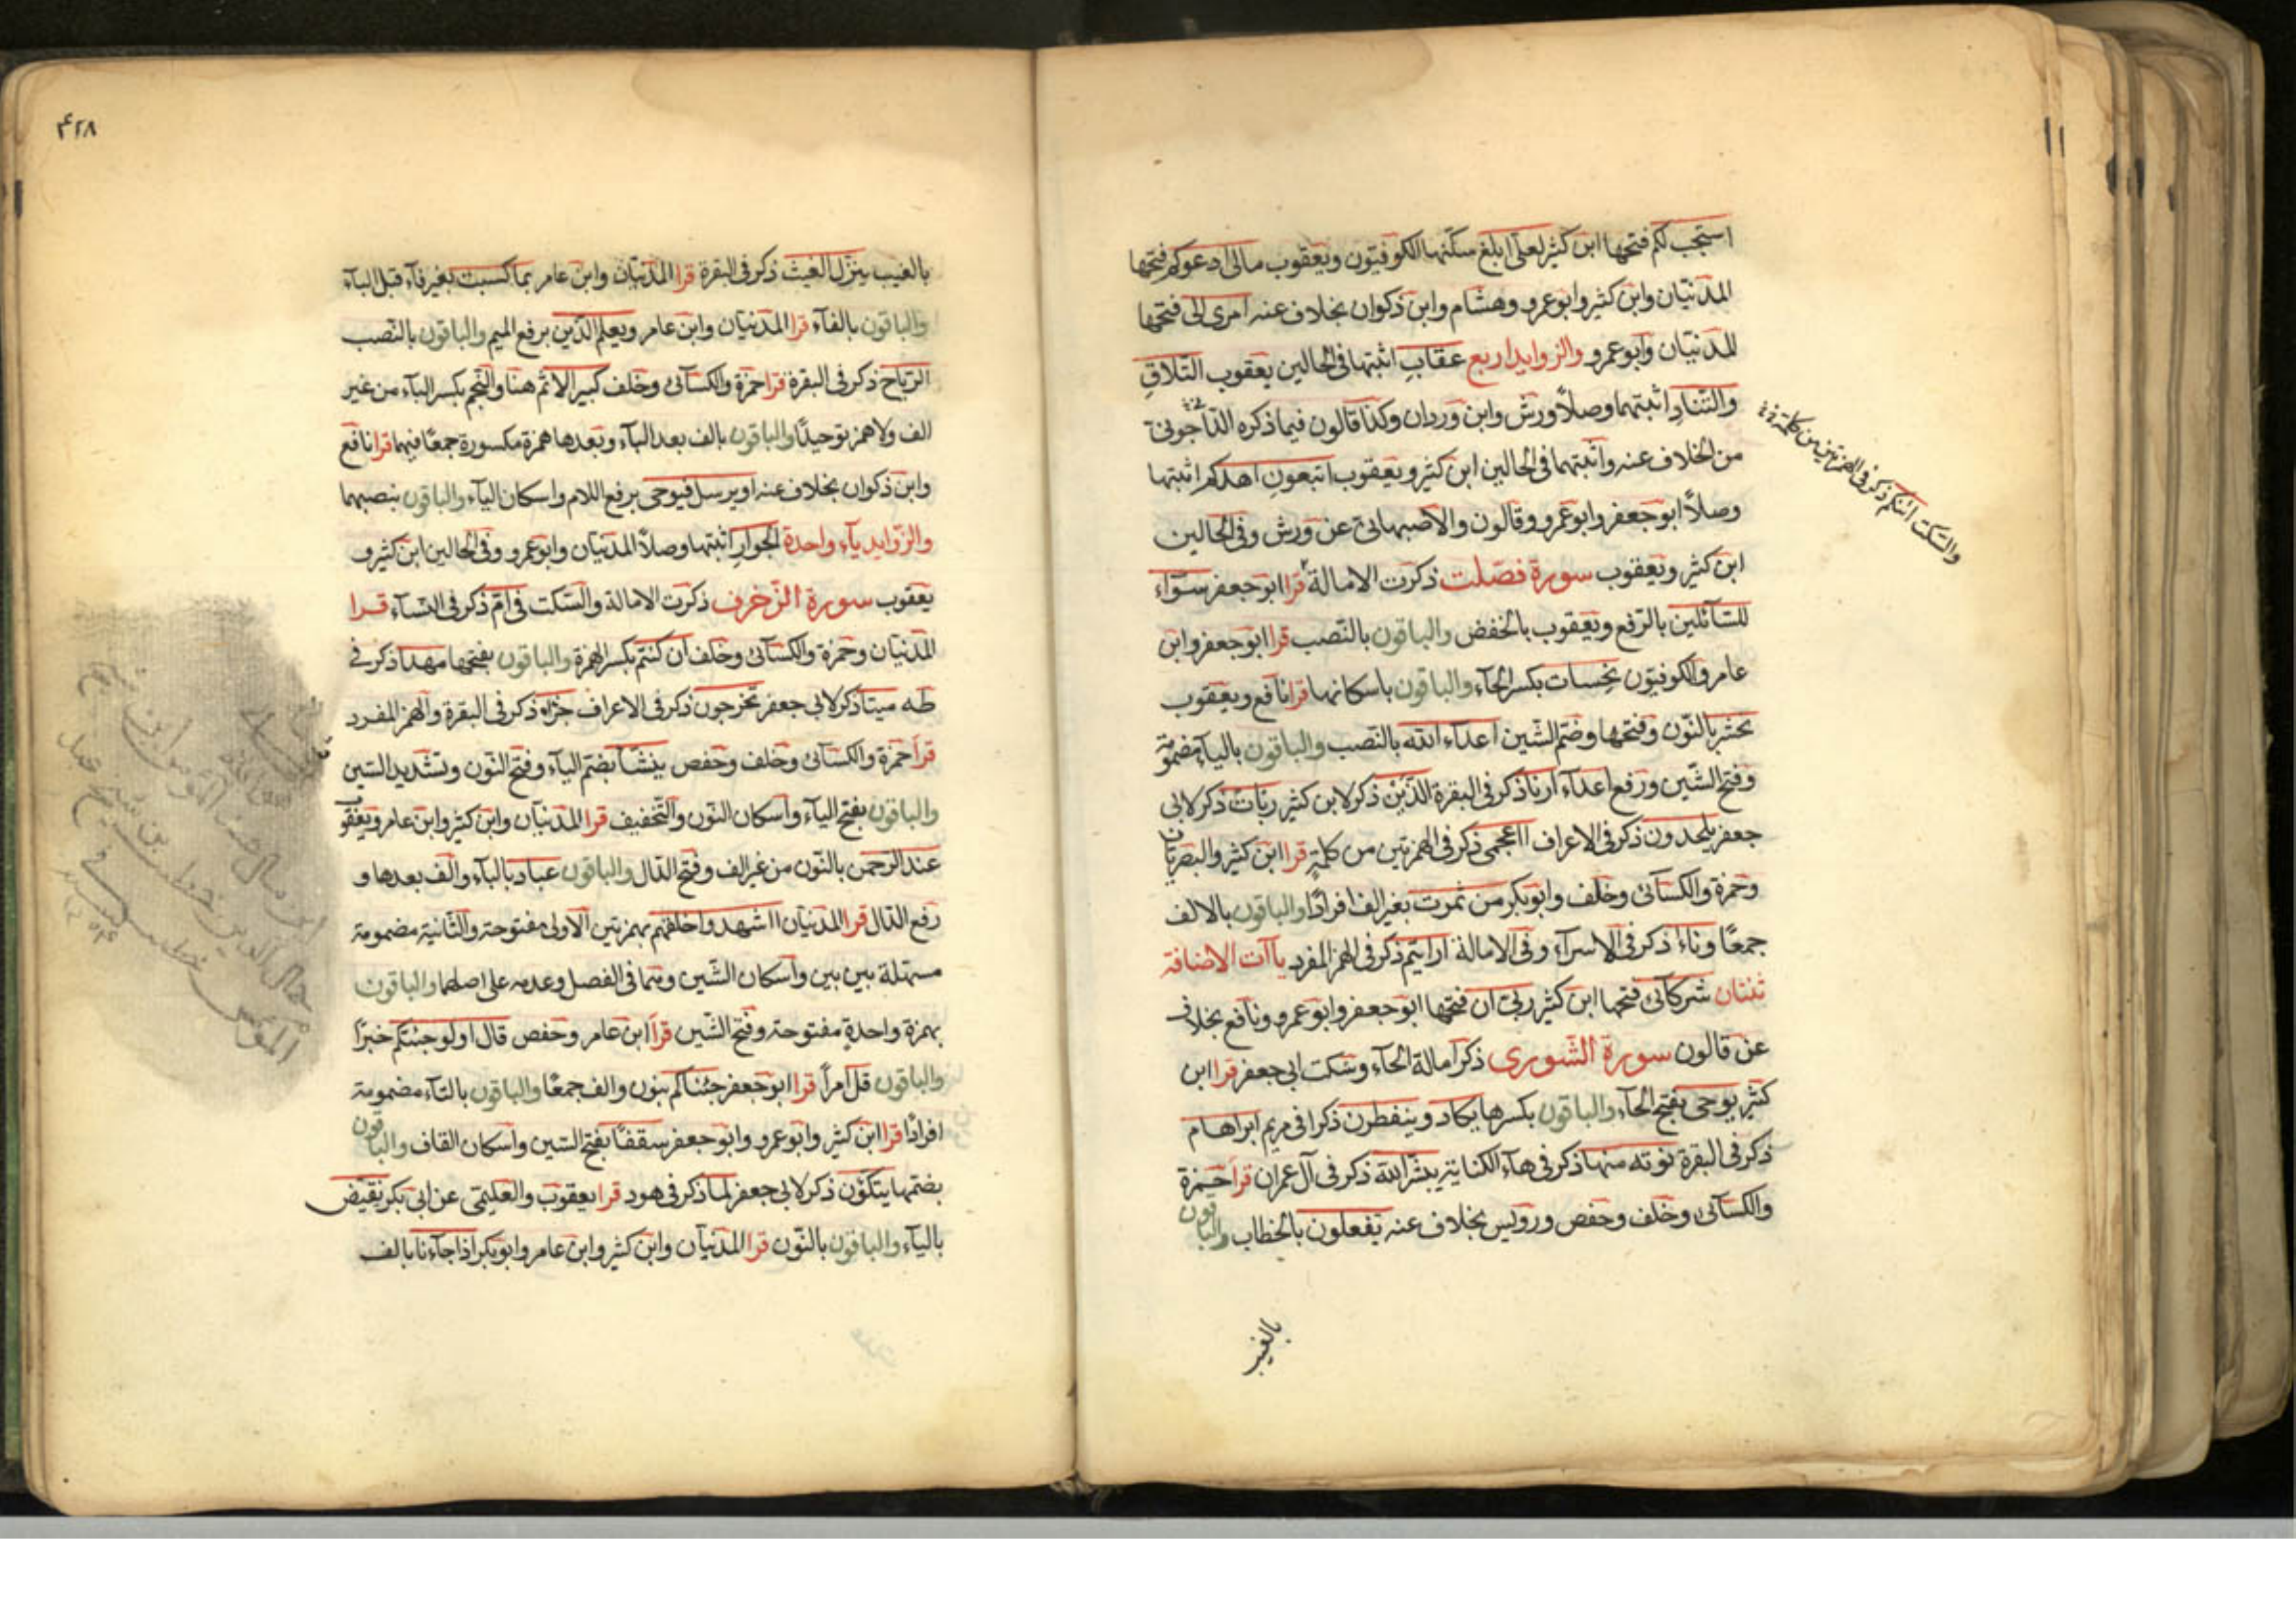 استجب لكم فتحها ابن كثير لعلى ابلغ سكنها الكوفيون ويعقوب مالى ادعوكم فتحها
المدنيان وابن كثير وابو عمرو وهشام وابن ذكوان بخلاف عنه امرى الى فتحها
المدنيان وابو عمرو والزوايد اربع عقاب اثبتها فى الحالين يعقوب التلاق
والتناد اثبتهما وصلاً ورش وابن وردان وكذا قالون فيما ذكره الداجونى
من الخلاف عنه واثبتهما فى الحالين ابن كثير ويعقوب اتبعون اهدكم اثبتها
وصلاً ابو جعفر وابو عمرو وقالون والاصبهانى عن ورش وفى الحالين
ابن كثير ويعقوب سورة فصلت ذكرت الامالة قرا ابو جعفر سوآء
والسكت ائنكم ذكر فى الهمزتين من كلمة
للسآئلين بالرفع ويعقوب بالخفض والباقون بالنصب قرا ابو جعفر وابن
عامر والكوفيون نحسات بكسر الحآء والباقون باسكانها قرا نافع ويعقوب
نحشر بالنون وفتحها وضم الشين اعدآء الله بالنصب والباقون باليآء مضمومة
وفتح الشين ورفع اعدآء ارنا ذكر فى البقرة الذين ذكر لابن كثير ربات ذكر لابى
جعفر يلحدون ذكر فى الاعراف ااعجمى ذكر فى الهمزتين من كلمة قرا ابن كثير والبصريان
وحمزة والكسآئى وخلف وابو بكر من ثمرت بغير الف افرادًا والباقون بالالف
جمعًا ونآء ذكر فى الاسرآء وفى الامالة ارايتم ذكر فى الهمز المفرد ياآت الاضافة
ثنتان شركآئى فتحها ابن كثير ربى ان فتحها ابو جعفر وابو عمرو ونافع بخلاف
عن قالون سورة الشورى ذكر امالة الحآء وسكت ابى جعفر قرا ابن
كثير يوحى بفتح الحآء والباقون بكسرها يكاد وينفطرن ذكرا فى مريم ابراهام
ذكر فى البقرة نوته منها ذكر فى هآء الكناية يبشر الله ذكر فى آل عمران قرا حمزة
والكسآئى وخلف وحفص ورويس بخلاف عنه تفعلون بالخطاب والباقون
بالغيب
۴۲۸
بالغيب ينزل الغيث ذكر فى البقرة قرا المدنيان وابن عامر بما كسبت بغير فآء قبل البآء
والباقون بالفآء قرا المدنيان وابن عامر ويعلم الذين برفع الميم والباقون بالنصب
الرياح ذكر فى البقرة قرا حمزة والكسآئى وخلف كبير الاثم هنا والنجم بكسر البآء من غير
الف ولا همز توحيدًا والباقون بالف بعد البآء وبعدها همزة مكسورة جمعًا فيهما قرا نافع
وابن ذكوان بخلاف عنه او يرسل فيوحى برفع اللام واسكان اليآء والباقون بنصبهما
والزوايد يآء واحدة الجوار اثبتها وصلاً المدنيان وابو عمرو وفى الحالين ابن كثير و
يعقوب سورة الزخرف ذكرت الامالة والسكت فى ام ذكر فى النسآء قرا
المدنيان وحمزة والكسآئى وخلف ان كنتم بكسر الهمزة والباقون بفتحها مهدا ذكر فى
طه ميتا ذكر لابى جعفر تخرجون ذكر فى الاعراف جزاء ذكر فى البقرة والهمز المفرد
قرا حمزة والكسآئى وخلف وحفص ينشأ بضم اليآء وفتح النون وتشديد الشين
والباقون بفتح اليآء واسكان النون والتخفيف قرا المدنيان وابن كثير وابن عامر ويعقوب
عند الرحمن بالنون من غير الف وفتح الدال والباقون عباد بالبآء والف بعدها و
رفع الدال قرا المدنيان ااشهدوا خلقهم بهمزتين الاولى مفتوحة والثانية مضمومة
مسهلة بين بين واسكان الشين وهما فى الفصل وعدمه على اصلهما والباقون
بهمزة واحدة مفتوحة وفتح الشين قرا ابن عامر وحفص قال اولو جئتكم خبرًا
والباقون قل امرًا قرا ابو جعفر جئناكم بنون والف جمعًا والباقون بالتآء مضمومة
افرادًا قرا ابن كثير وابو عمرو وابو جعفر سقفًا بفتح السين واسكان القاف والباقون
بضتمها يتكؤن ذكر لابى جعفر لما ذكر فى هود قرا يعقوب والعليمى عن ابى بكر نقيض
باليآء والباقون بالنون قرا المدنيان وابن كثير وابن عامر وابو بكر اذا جآءنا بالف